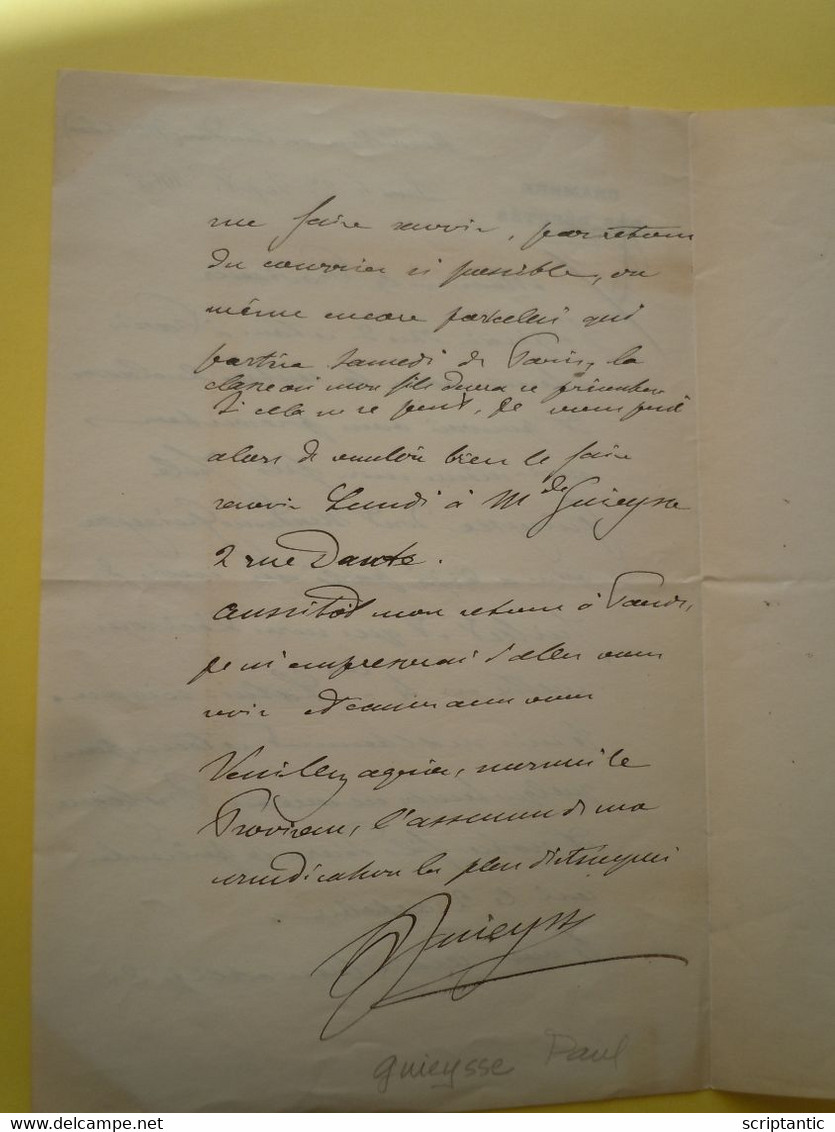 me faire savoir, par retour
du courrier si possible, ou
même encore par celui qui
partira Samedi de Paris, la
classe où mon fils devra se présenter.
Si cela ne se peut, je vous prie
alors de vouloir bien le faire
savoir Lundi à Mde Guieysse
2 rue Dante.
Aussitôt mon retour à Paris,
je m'empresserai d'aller vous
voir et causer avec vous
Veuillez agréer, monsieur le
Proviseur, l'assurance de ma
considération la plus distinguée
Guieysse
Guieysse Paul
delcampe.net
scriptantic